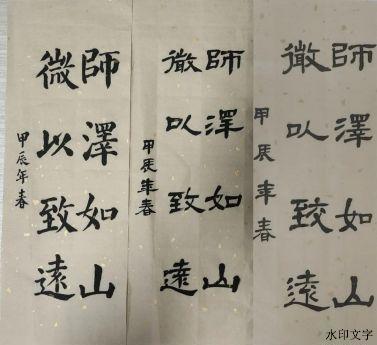 師澤如山
微以致遠
甲辰年春
師澤如山
微以致遠
甲辰年春
師澤如山
微以致遠
甲辰年春
水印文字